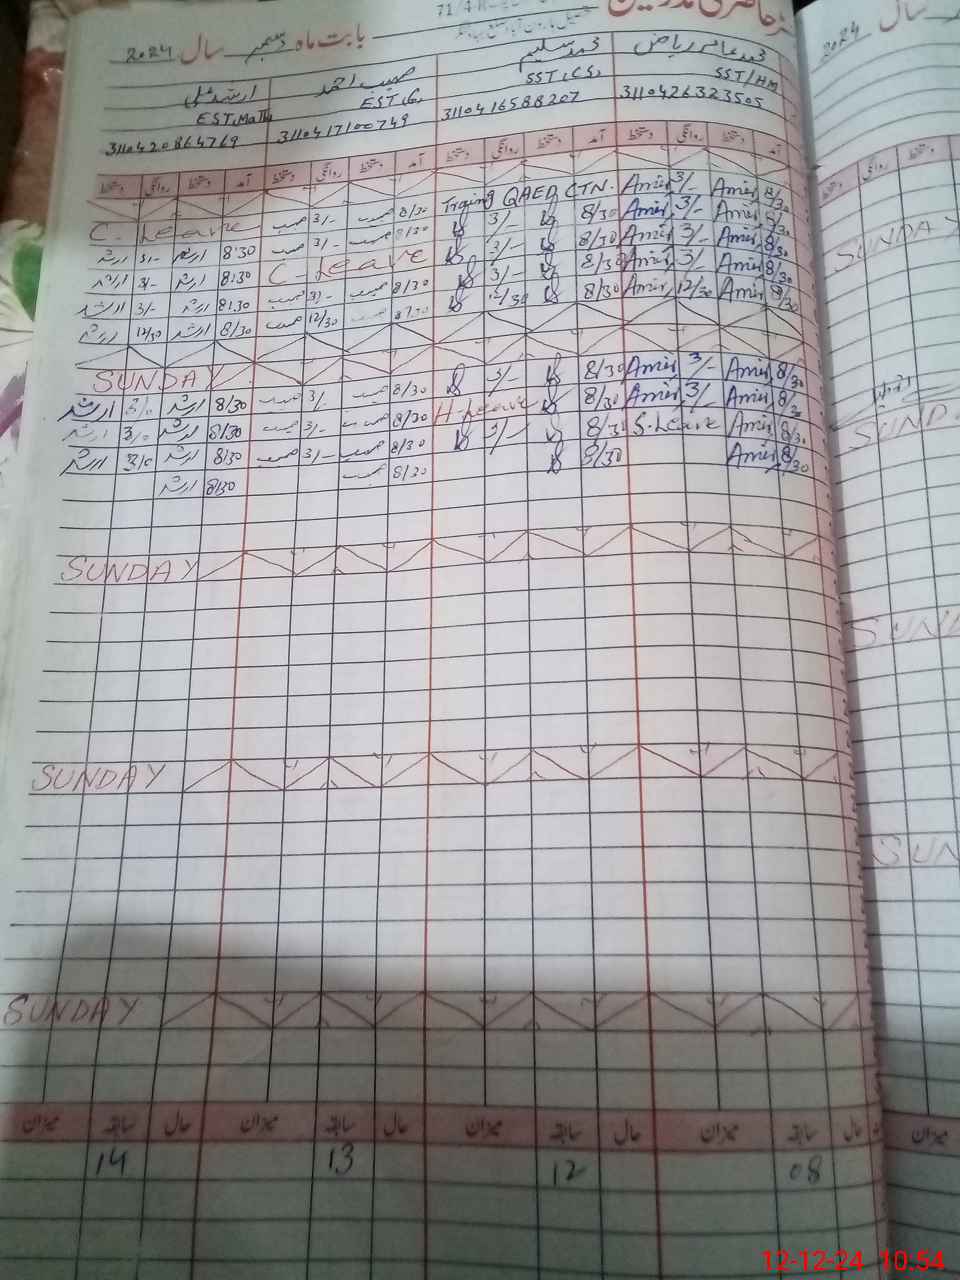 حاضری مدرسین
71/4-R
بابت ماہ دسمبر سال 2024
سال 2024
محمد عامر ریاض محمد سلیم صہیب احمد ارشد علی
SST/HM SST(CS) EST(G) EST,Math
3110426323505 3110416588207 3110417100749 3110420864769
آمد دستخط روانگی دستخط آمد دستخط روانگی دستخط آمد دستخط روانگی دستخط آمد دستخط روانگی دستخط
C-Leave صہیب 3/- صہیب 8/30 Traning QAED CTN. Amir 3/- Amir 8/30
ارشد 3/- ارشد 8'30 صہیب 3/- صہیب 8/30 3/- 8/30 Amir 3/- Amir 8/30
ارشد 3/- ارشد 8'30 C-Leave 3/- 8/30 Amir 3/- Amir 8/30
ارشد 3/- ارشد 8'30 صہیب 3/- صہیب 8/30 3/- 8/30 Amir 3/- Amir 8/30
ارشد 12/30 ارشد 8/30 صہیب 12/30 صہیب 12/30 8/30 Amir 12/30 Amir 8/30
SUNDAY
ارشد 3/0 ارشد 8/30 صہیب 3/- صہیب 8/30 3/- 8/30 Amir 3/- Amir 8/30
ارشد 3/0 ارشد 8/30 صہیب 3/- صہیب 8/30 H-Leave 8/30 Amir 3/- Amir 8/30
ارشد 3/0 ارشد 8/30 صہیب 3/- صہیب 8/30 3/- 8/30 S.Leave Amir 8/30
ارشد 8/30 صہیب 8/30 8/30 Amir 8/30
SUNDAY
SUNDAY
SUNDAY
میزان سابقہ حال میزان سابقہ حال میزان سابقہ حال میزان سابقہ حال
14 13 12 08
دستخط روانگی دستخط
SUNDAY
SUNDA
SUND
SUN
میزان
12-12-24 10:54